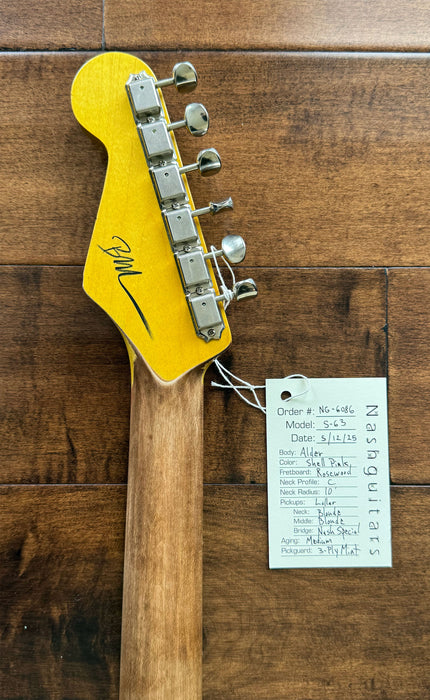 Nashguitars
Order #: NG-6086
Model: S-63
Date: 5/12/25
Body: Alder
Color: Shell Pink
Fretboard: Rosewood
Neck Profile: C
Neck Radius: 10"
Pickups: Lollar
Neck: Blonde
Middle: Blonde
Bridge: Nash Special
Aging: Medium
Pickguard: 3-Ply Mint